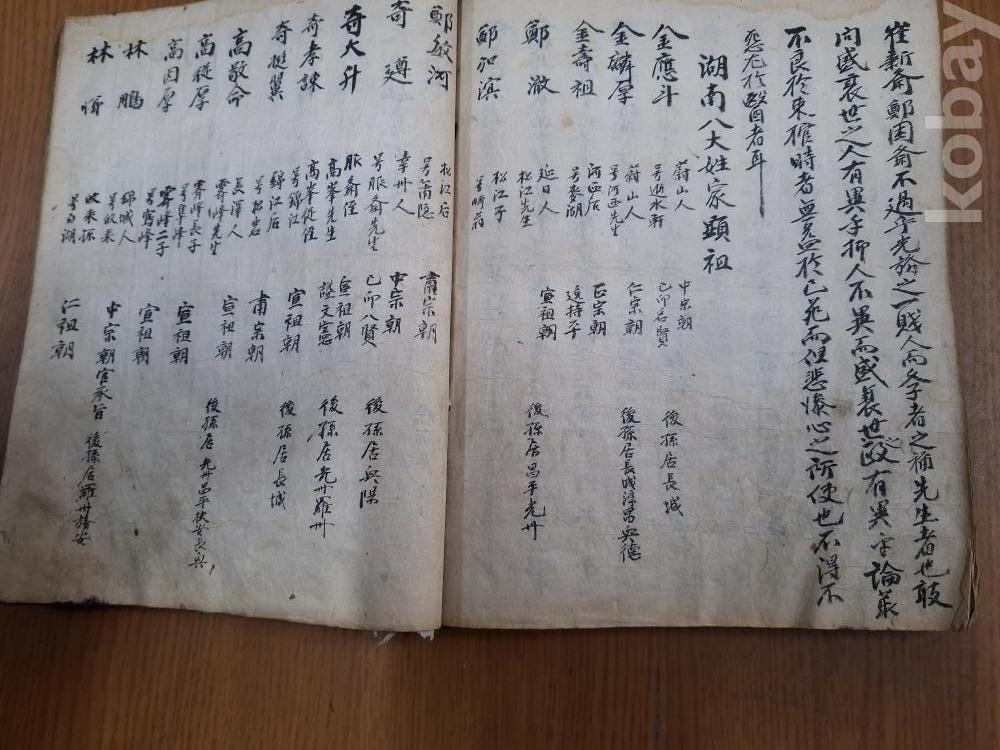 崔新齋鄭困齋不過宣光於之一賤人而冬者之補先生者也敢
問盛衰世之人有異乎抑人不異而盛衰世政有異乎論菜
不良於東權時者無足於已死而但悲慘心之所使也不得不
惡尤於醫者耳
湖南八大姓家顯祖
金應斗 蔚山人 号逝水軒 中宗朝 己卯名賢 後孫居長城
金麟厚 蔚山人 号河西先生 仁宗朝 後孫居長城淳昌興德
金壽祖 河西后 号麥湖 正宗朝 進持平
鄭澈 延日人 松江先生 宣祖朝 後孫居昌平光州
鄭 溟 松江子 号畸翁
鄭敏河 松江后 号簫隱 肅宗朝
奇遵 幸州人 号服齋先生 中宗朝 己卯八賢 後孫居興陽
奇大升 服齋侄 高峯先生 宣祖朝 諡文憲 後孫居光州羅州
奇孝諫 高峯從侄 号錦江 宣祖朝 後孫居長城
奇挺翼 錦江后 号松岩 肅宗朝
高敬命 長澤人 霽峰先生 宣祖朝 後孫居光州昌平扶安長興
高從厚 霽峰長子 号隼峰 宣祖朝
高因厚 霽峰二子 号鶴峰 宣祖朝
林鵬 錦城人 号歸來 中宗朝官承旨 後孫居羅州務安
林㥠 歸來孫 号白湖 仁祖朝
kobay